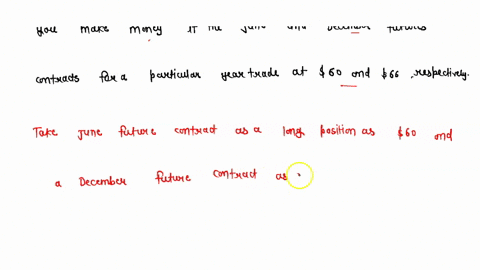 you make money if the June and December futures
contracts for a particular year trade at $60 and $66, respectively.
Take June future contract as a long position as $60 and
a December future contract as